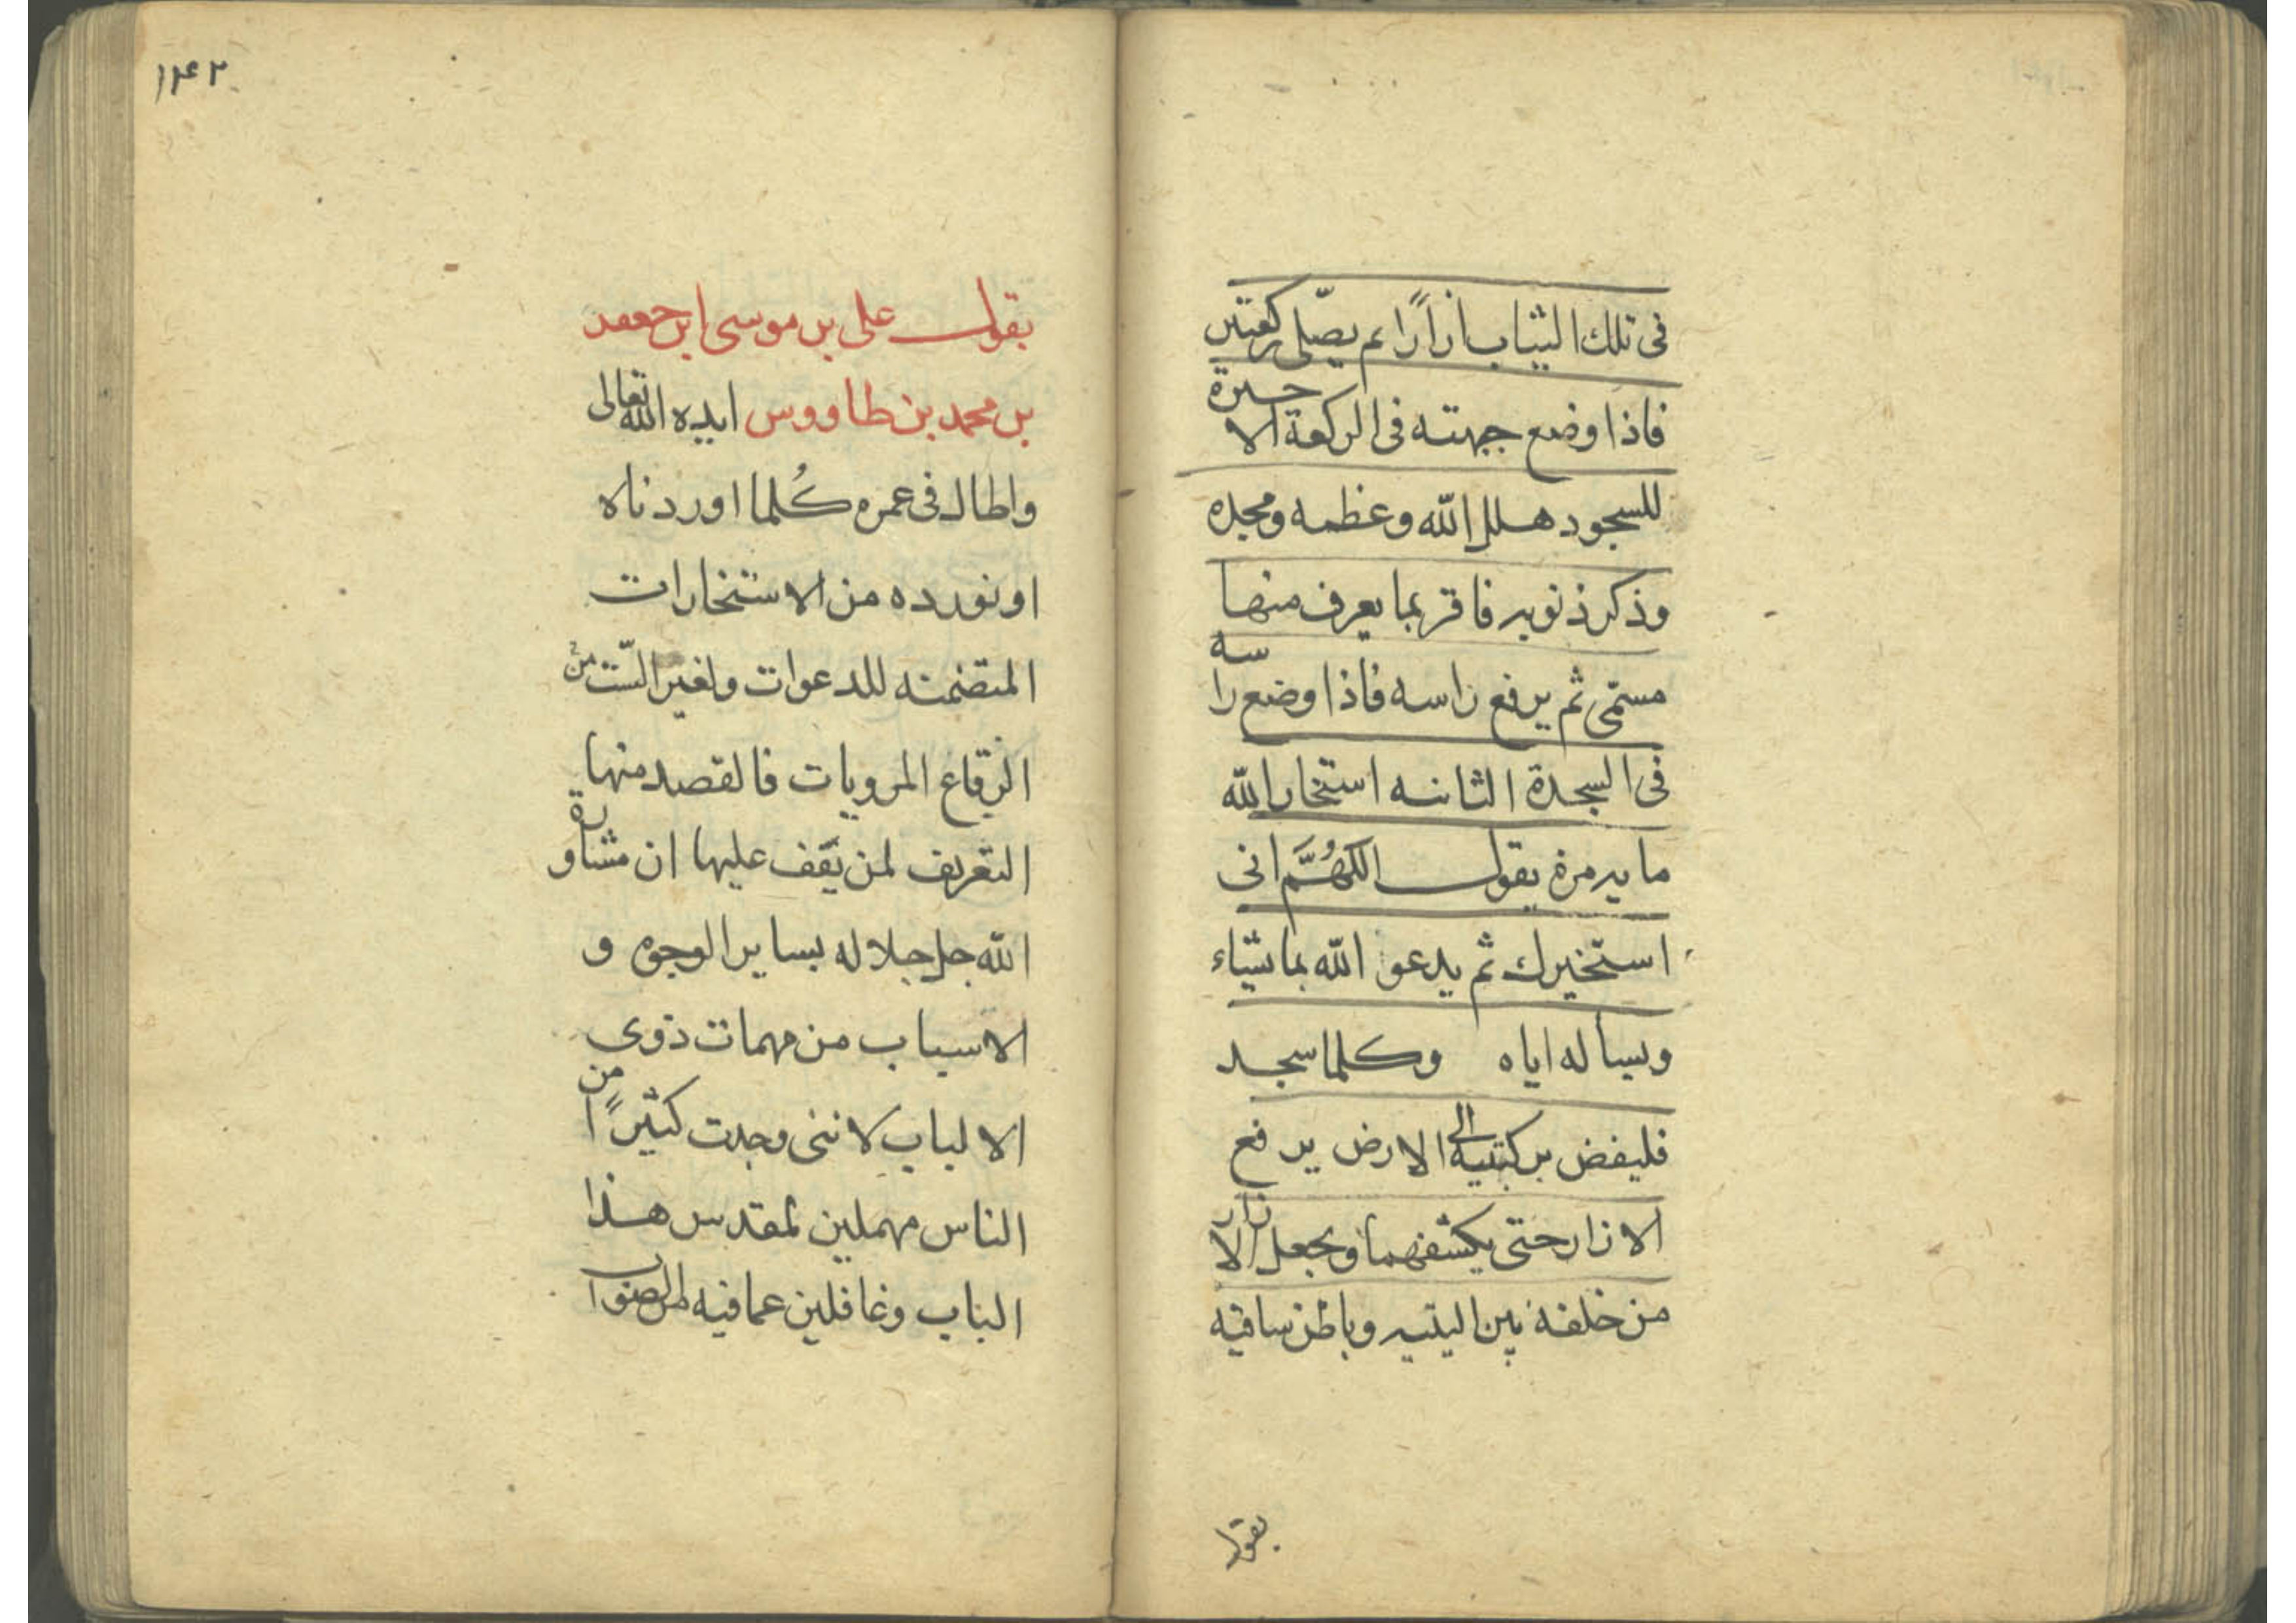 فى تلك الثياب ازارًا ثم يصلّى ركعتين
فاذا وضع جبهته فى الركعة الاخيرة
للسجود هلل الله وعظمه ومجده
وذكر ذنوبه فاقر بما يعرف منها
مسمّى ثم يرفع راسه فاذا وضع راسه
فى السجدة الثانيه استخار الله
مايه مرة يقول اللهُمَّ انى
استخيرك ثم يدعو الله بما شاء
ويساله اياه وكلما سجد
فليفض بركبتيه الى الارض يرفع
الازار حتى يكشفهما ويجعل الازار
من خلفه بين اليتيه وباطن ساقيه
يقول
١٤٢
يقول على بن موسى ابن جعفر
بن محمد بن طاووس ايده الله تعالى
واطال فى عمره كُلما اوردناه
او نورده من الاستخارات
المتضمنه للدعوات ولغير السّت من
الرقاع المرويات فالقصد منها
التعريف لمن يَقف عليها ان مشاورة
الله جل جلاله بساير الوجوه و
الاسباب من مهمات ذوى
الالباب لاننى وجدت كثيرًا من
الناس مهملين لمقدس هذا
الباب وغافلين عما فيه من الصواب